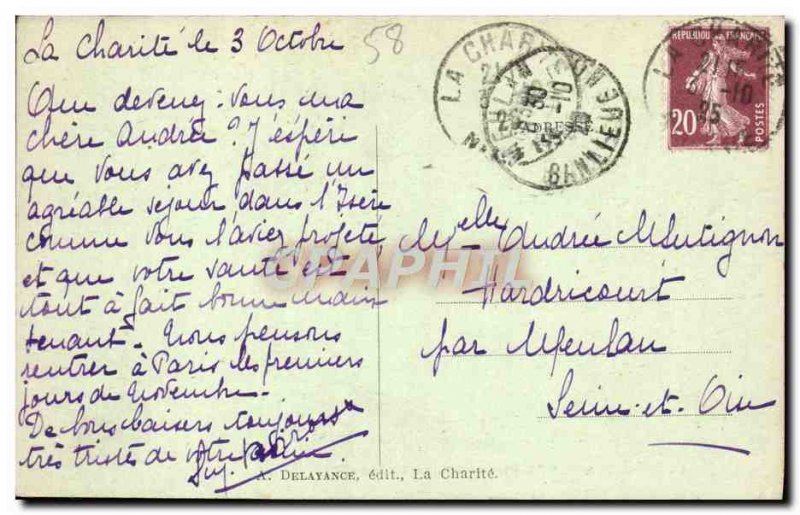 La Charité le 3 Octobre
58
Que devenez-vous ma
chère Andrée ? J'espère
que vous avez passé un
agréable séjour dans l'Isère
comme vous l'aviez projeté,
et que votre santé est
tout à fait bonne main
tenant. Nous pensons
rentrer à Paris les premiers
jours de Novembre.
De bons baisers toujours
très tristes de votre
A. DELAYANCE, édit., La Charité.
LA CHARITÉ
21
3-10
25
MEULAN
BANLIEUE
ADRESSE
REPUBLIQUE FRANÇAISE
20
POSTES
Melle Andrée Mutignon
Hardricourt
par Meulan
Seine-et-Oise
CPAPHIL